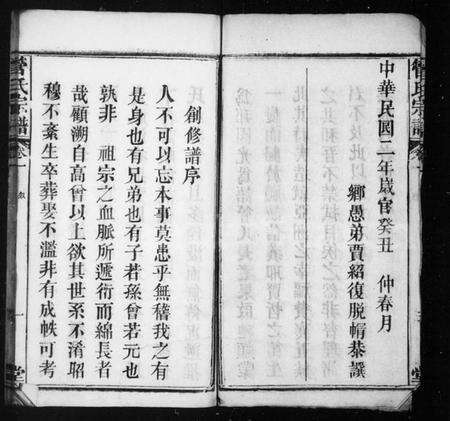 中華民國二年歲官癸丑 仲春月
鄉愚弟賈紹復脫帽恭譔
創修譜序
人不可以忘本事莫患乎無稽我之有
是身也有兄弟也有子若孫曾若元也
孰非 祖宗之血脈所遞衍而綿長者
哉顧溯自高曾以上欲其世系不淆昭
穆不紊生卒葬娶不濫非有成帙可考
氏宗譜
卷一
序
一
堂